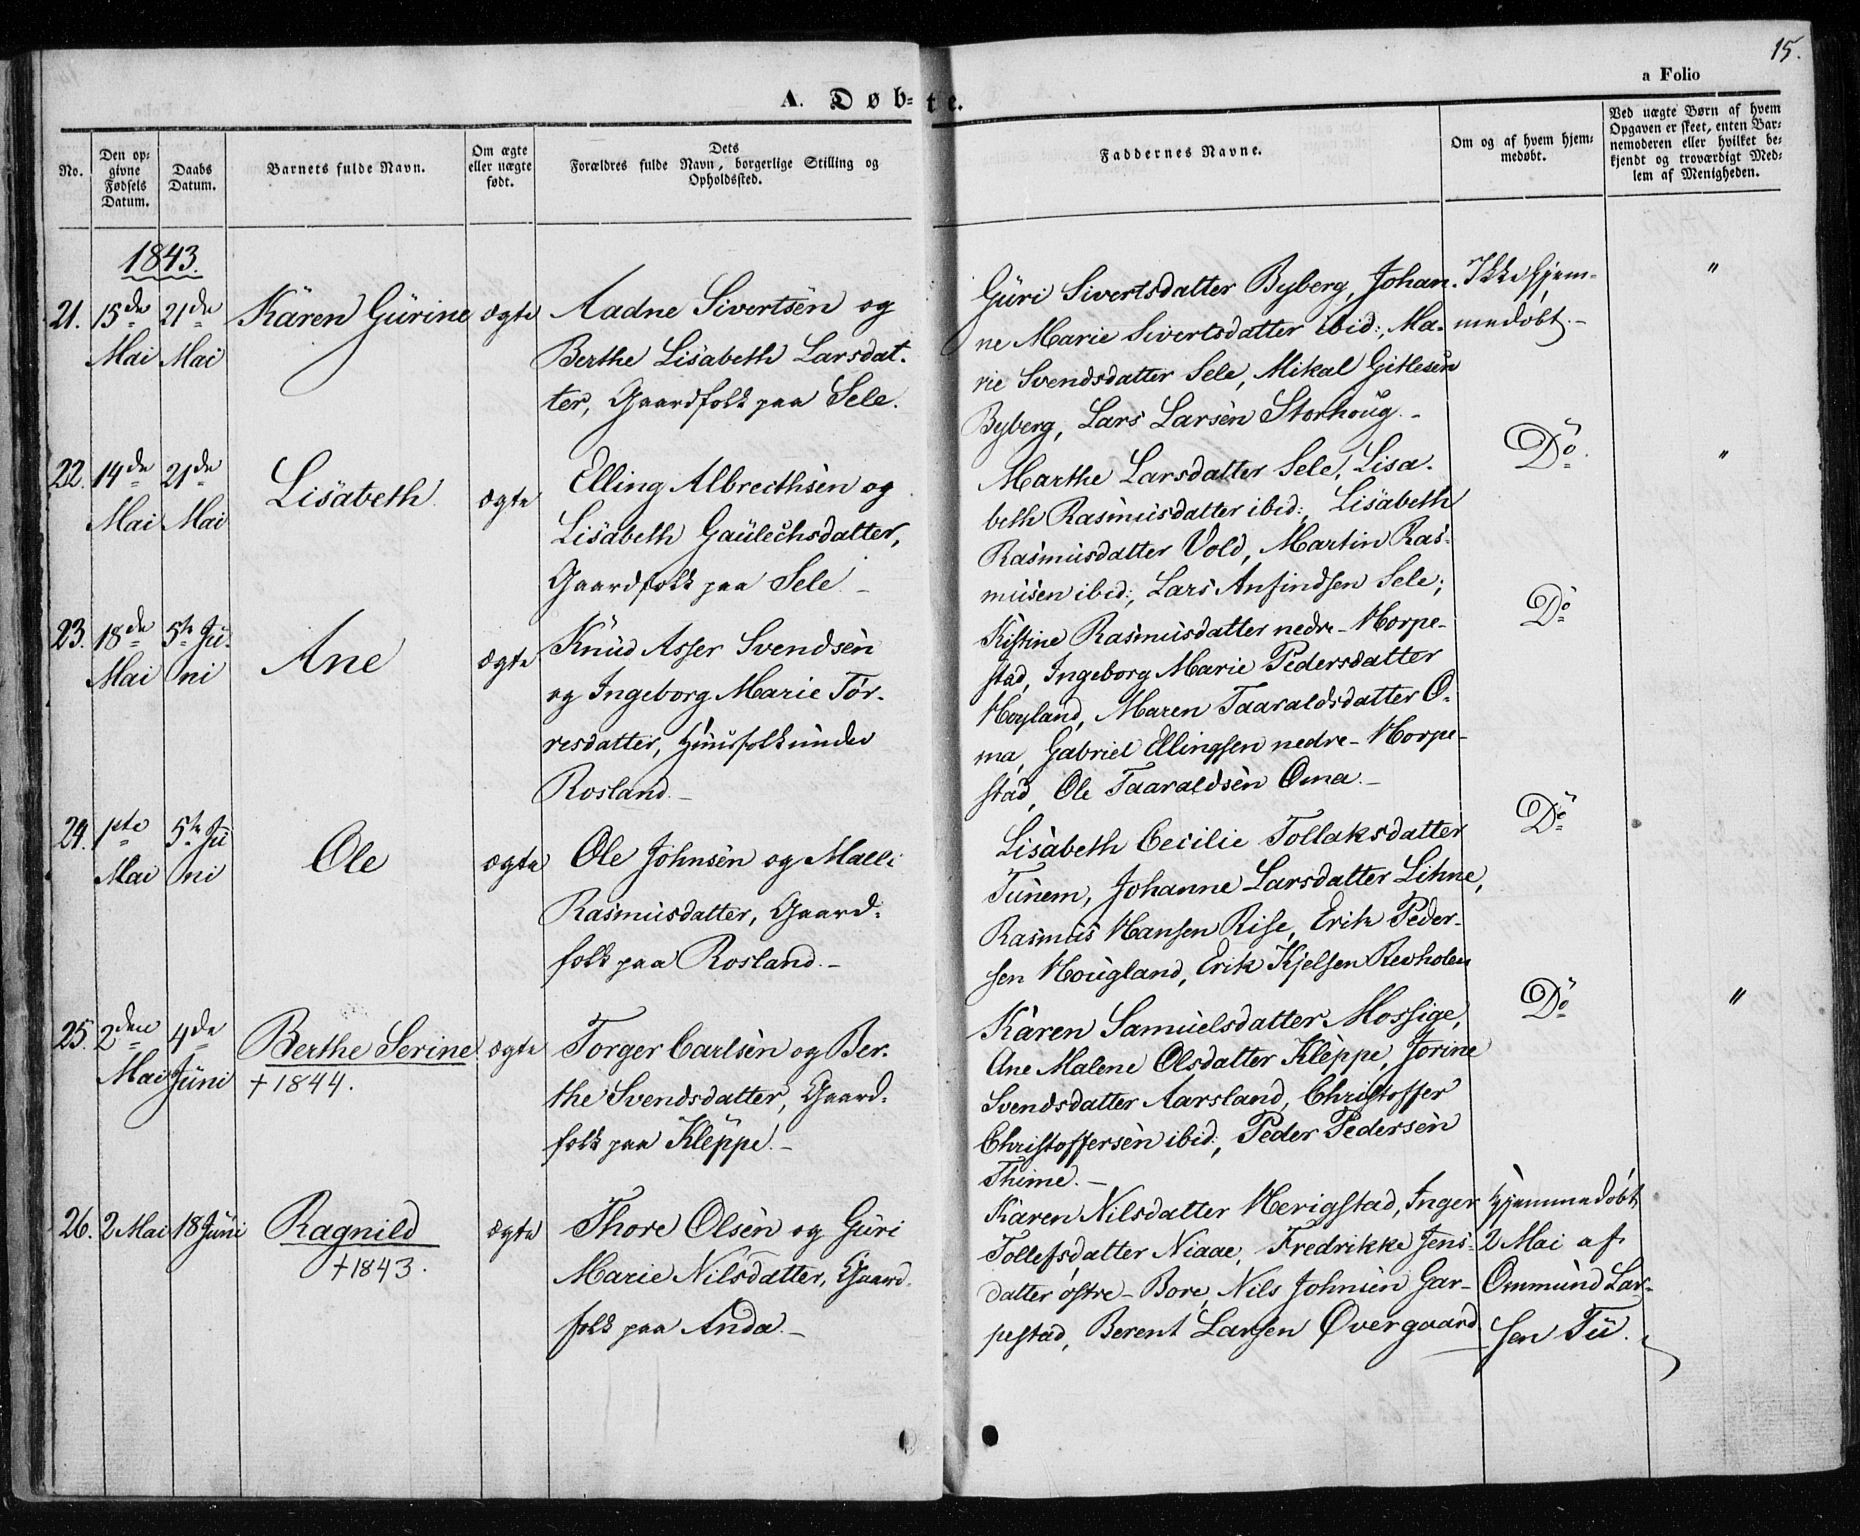 15.
a Folio
A. Døb=te.
No.
Den op=
givne
Fødsels
Datum.
Daabs
Datum.
Barnets fulde Navn.
Om ægte
eller uægte
født.
Dets
Forældres fulde Navn, borgerlige Stilling og
Opholdssted.
Faddernes Navne.
Om og af hvem hjem=
medøbt.
Ved uægte Børn af hvem
Opgaven er skeet, enten Bar=
nemoderen eller hvilket be=
kjendt og troværdigt Med=
lem af Menigheden.
1843.
21. 15de 21de Karen Gurine ægte Aadne Sivertsen og
Mai Mai Berthe Lisabeth Larsdat-
ter, Gaardfolk paa Sele.
Guri Sivertsdatter Byberg, Johan-
ne Marie Sivertsdatter ibid:, Ma-
rie Svendsdatter Sele, Mikal Gitlesen
Byberg, Lars Larsen Storhoug.-
Ikke hjem-
medøbt.-
"
22. 14de 21de Lisabeth. ægte Elling Albrecthsen og
Mai Mai Lisabeth Gaulechsdatter,
Gaardfolk paa Sele.-
Marthe Larsdatter Sele, Lisa-
beth Rasmusdatter ibid:, Lisabeth
Rasmusdatter Vold, Martin Ras-
musen ibid:, Lars Anfindsen Sele;
Do.
"
23. 18de 5te Ju- Ane ægte Knud Asser Svendsen
Mai ni og Ingeborg Marie Tør-
resdatter, Huusfolk under
Rosland.-
Kistine Rasmusdatter nedre-Horpe-
stad, Ingeborg Marie Pedersdatter
Høyland, Maren Taaraldsdatter O-
ma, Gabriel Ellingsen nedre-Horpe-
stad, Ole Taaraldsen Oma.-
Do
24. 1ste 5te Ju Ole ægte Ole Johnsen og Malli
Mai ni Rasmusdatter, Gaard-
folk paa Rosland.-
Lisabeth Cecilie Tollaksdatter
Tunem, Johanne Larsdatter Lihne,
Rasmus Hansen Rise, Erik Peder-
sen Hougland, Erik Kjelsen Revholen
Do
25. 2den 4de Berthe Serine ægte Torger Carlsen og Ber-
Mai Juni + 1844. the Svendsdatter, Gaard-
folk paa Kleppe.-
Karen Samuelsdatter Mossige,
Ane Malene Olsdatter Kleppe, Jorine
Svendsdatter Aarsland, Christoffer
Christoffersen ibid:, Peder Pedersen
Thime.-
Do
"
26. 2 Mai 18 Juni Ragnild ægte Thore Olsen og Guri
+1843. Marie Nilsdatter, Gaard-
folk paa Anda.-
Karen Nilsdatter Herigstad, Inger
Tollefsdatter Niaae, Fredrikke Jens-
datter østre-Bore, Nils Johnsen Gar-
pestad, Berent Larsen Øvergaard.
Hjemmedøbt
2 Mai af
Ommund Lar-
sen Tu.